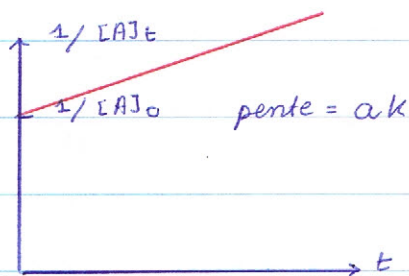 1/[A]t
1/[A]0 pente = ak
t